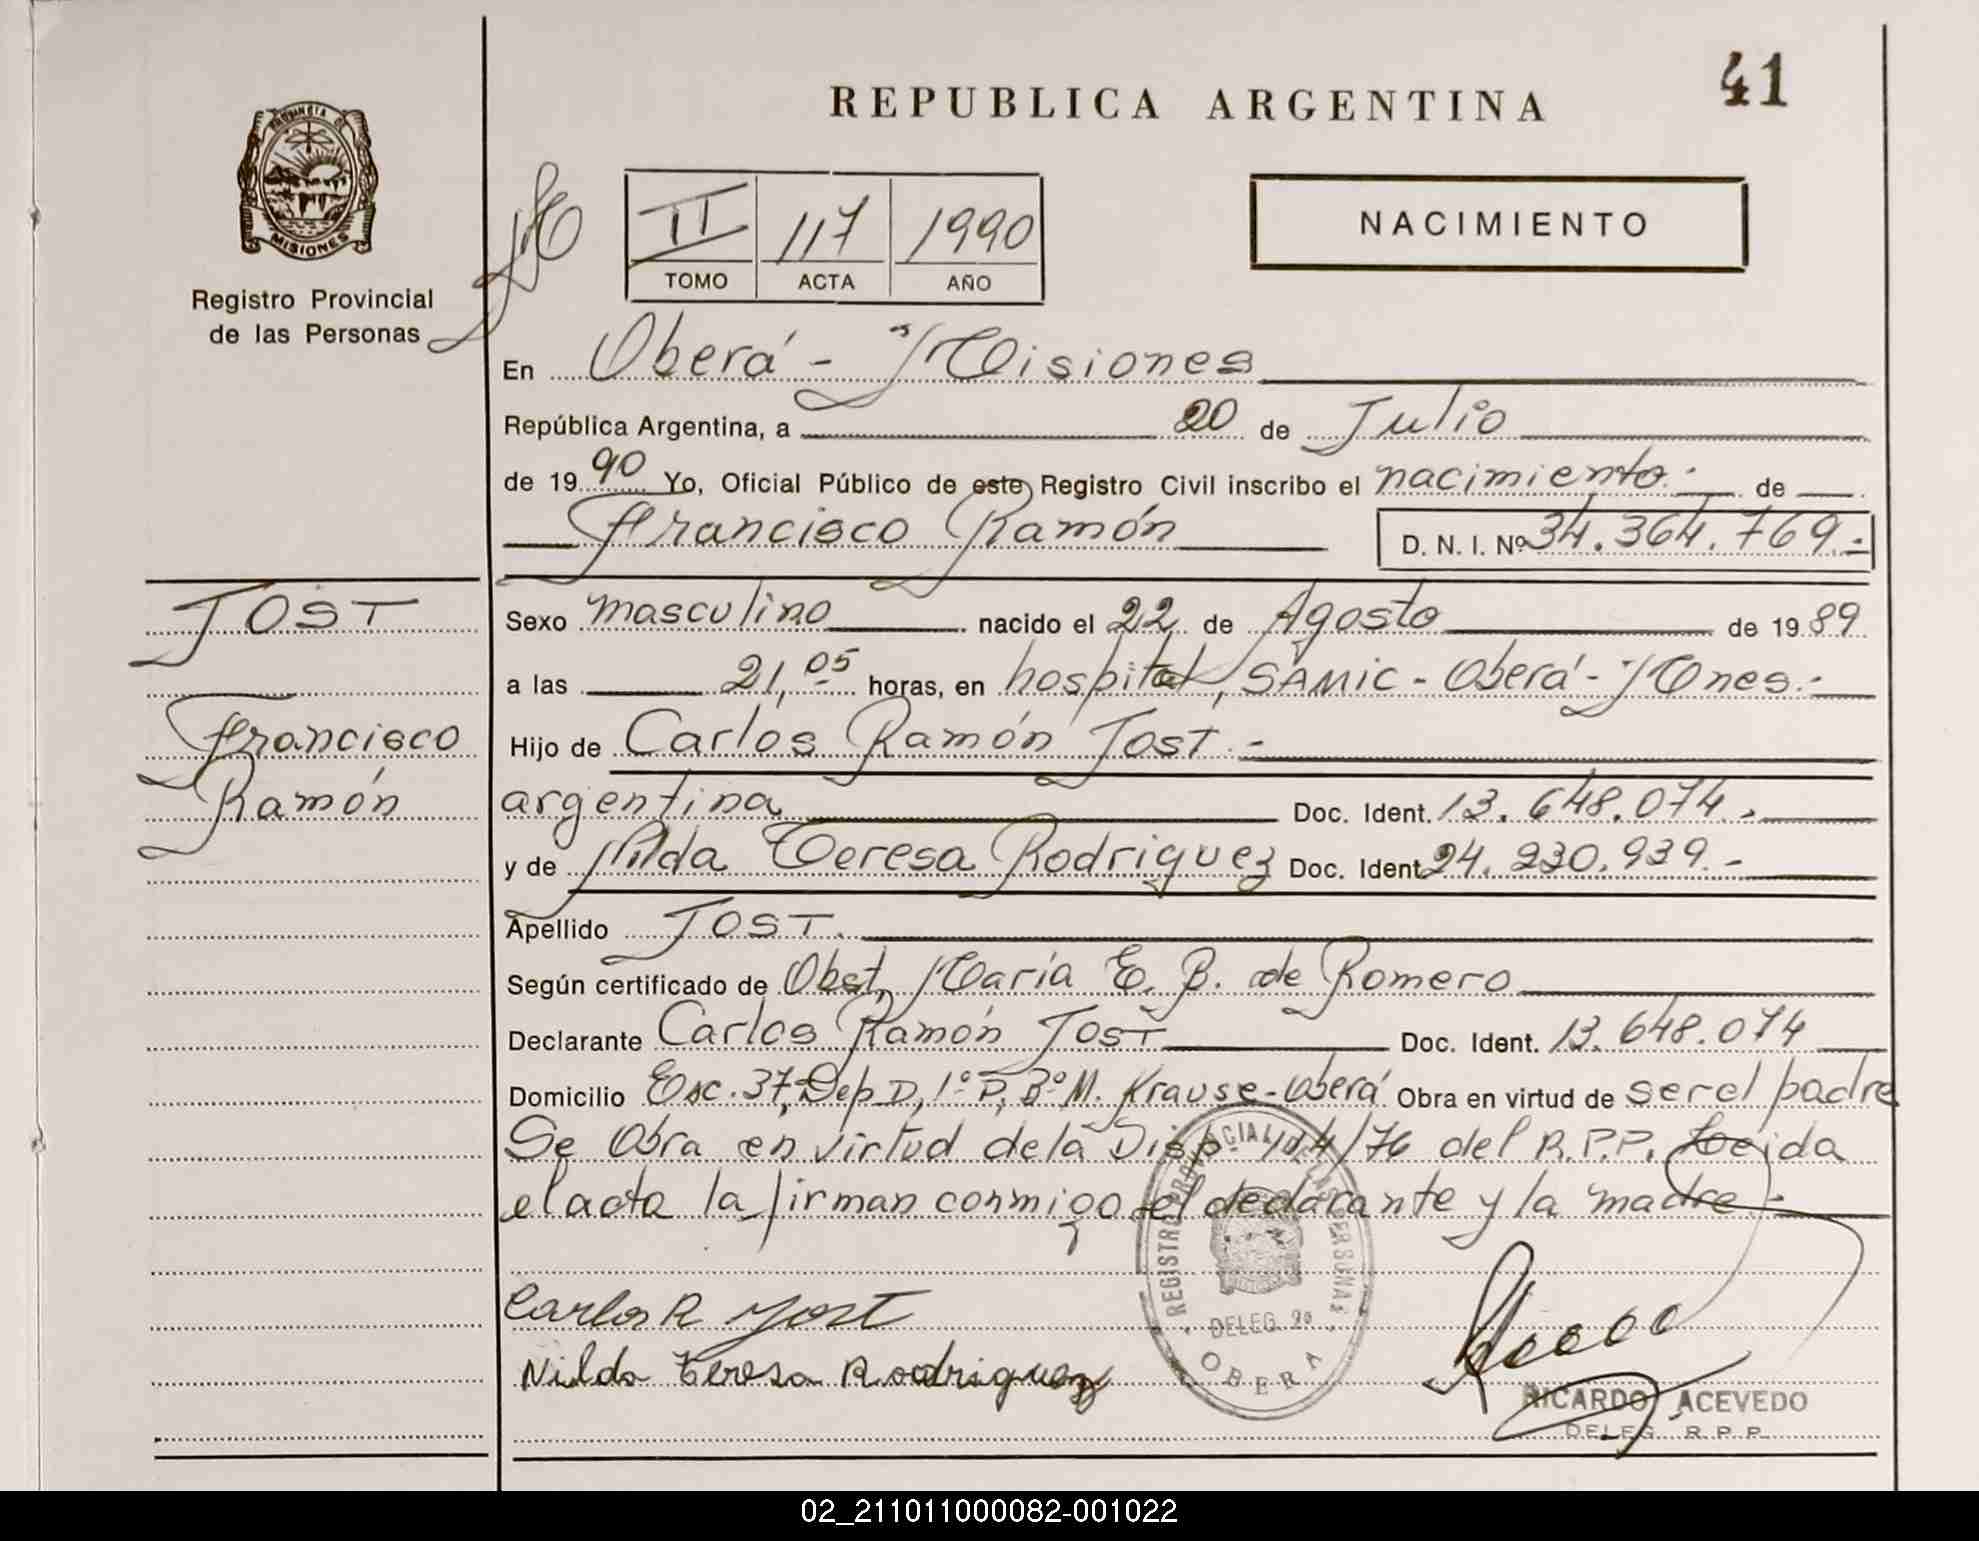 41
REPUBLICA ARGENTINA
PROVINCIA DE
MISIONES
Registro Provincial
de las Personas
II 117 1990
TOMO ACTA AÑO
NACIMIENTO
En Oberá - Misiones
República Argentina, a 20 de Julio
de 1990 Yo, Oficial Público de este Registro Civil inscribo el nacimiento.- de
Francisco Ramón D. N. I. Nº 34.364.769.-
JOST
Francisco
Ramón
Sexo masculino nacido el 22 de Agosto de 1989
a las 21,05 horas, en hospital, SAMIC - Oberá - Mnes.-
Hijo de Carlos Ramón Jost.-
argentina Doc. Ident. 13.648.074.-
y de Nilda Teresa Rodriguez Doc. Ident. 24.230.939.-
Apellido JOST.
Según certificado de Obst, María E. B. de Romero
Declarante Carlos Ramón Jost Doc. Ident. 13.648.074
Domicilio Esc. 37, Dep D, 1º P, Bº M. Krause - Oberá Obra en virtud de ser el padre
Se obra en virtud de la Disp. 104/76 del R.P.P. Leida
el acta la firman conmigo el declarante y la madre.-
Carlos R Jost
Nilda Teresa Rodriguez
REGISTRO PROVINCIAL DE LAS PERSONAS
DELEG.
OBERA
RICARDO ACEVEDO
DELEG. R. P. P.
02_211011000082-001022